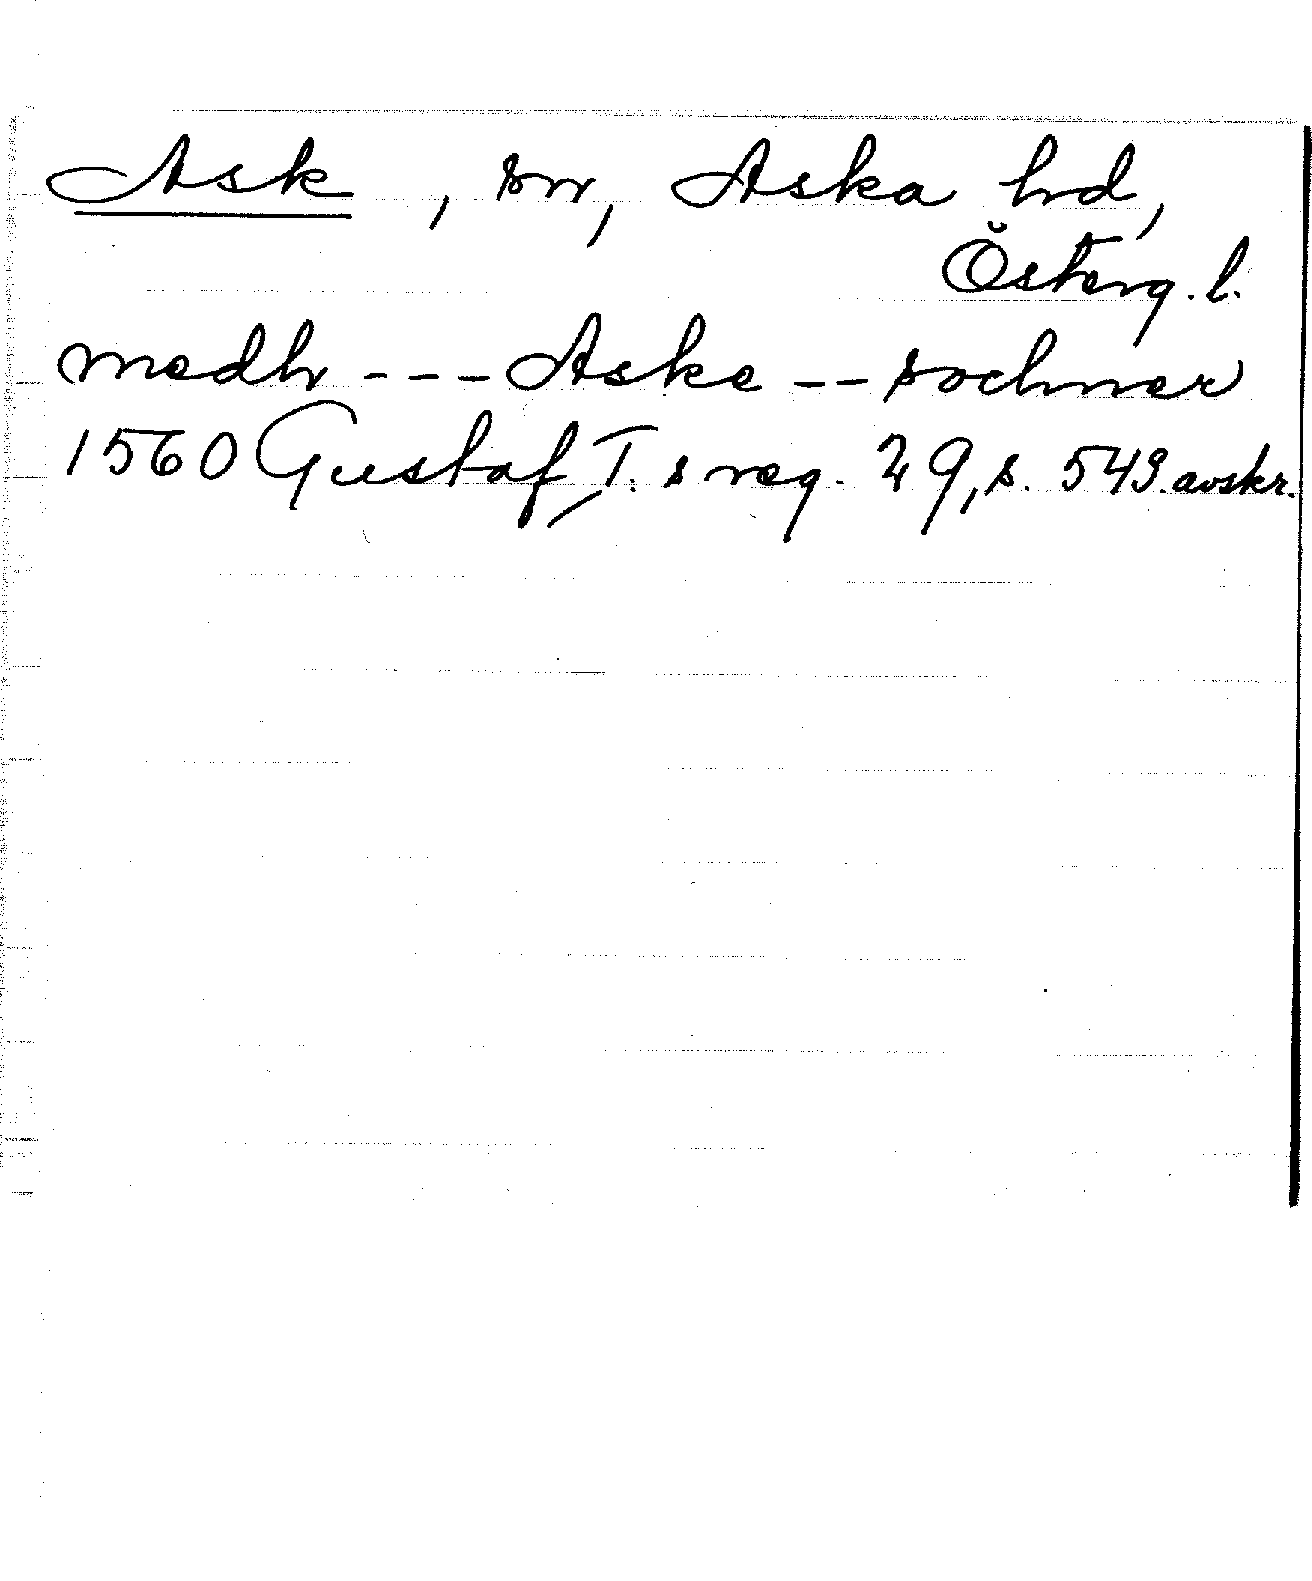 Ask, sn, Aska hd,
Österg. l.
medh --- Aske -- sochner
1560 Gustaf I:s reg. 29, s. 549. avskr.